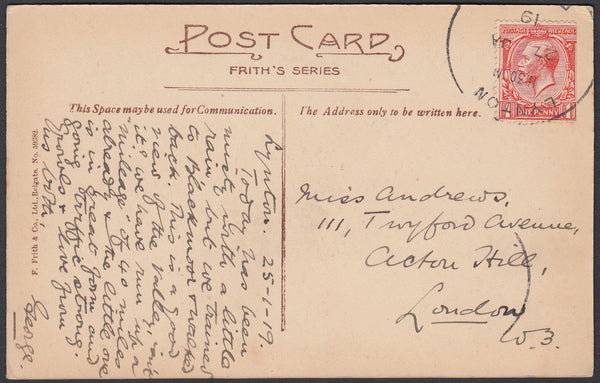 POST CARD
FRITH'S SERIES
This Space may be used for Communication.
The Address only to be written here.
POSTAGE REVENUE
ONE PENNY
LYNTON
19
Lynton. 25-1-19.
Today has been
misty with a little
rain but we trained
to Blackmoor & walked
back. This is a good
view of the valley, isn't
it? We have run up a
"mileage" of 40 miles
already & the little one
is in great form and
going strong.
love from
us both,
George.
Miss Andrews,
111, Twyford Avenue,
Acton Hill,
London
W.3.
F. Frith & Co., Ltd., Reigate. No.